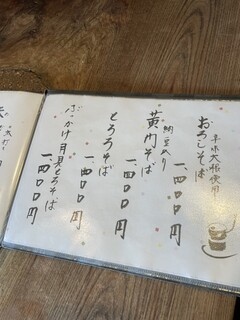 辛味大根使用
おろしそば
一、四〇〇円
納豆入り
黄門そば
一、四〇〇円
とろろそば
一、四〇〇円
ぶっかけ月見とろろそば
一、四〇〇円